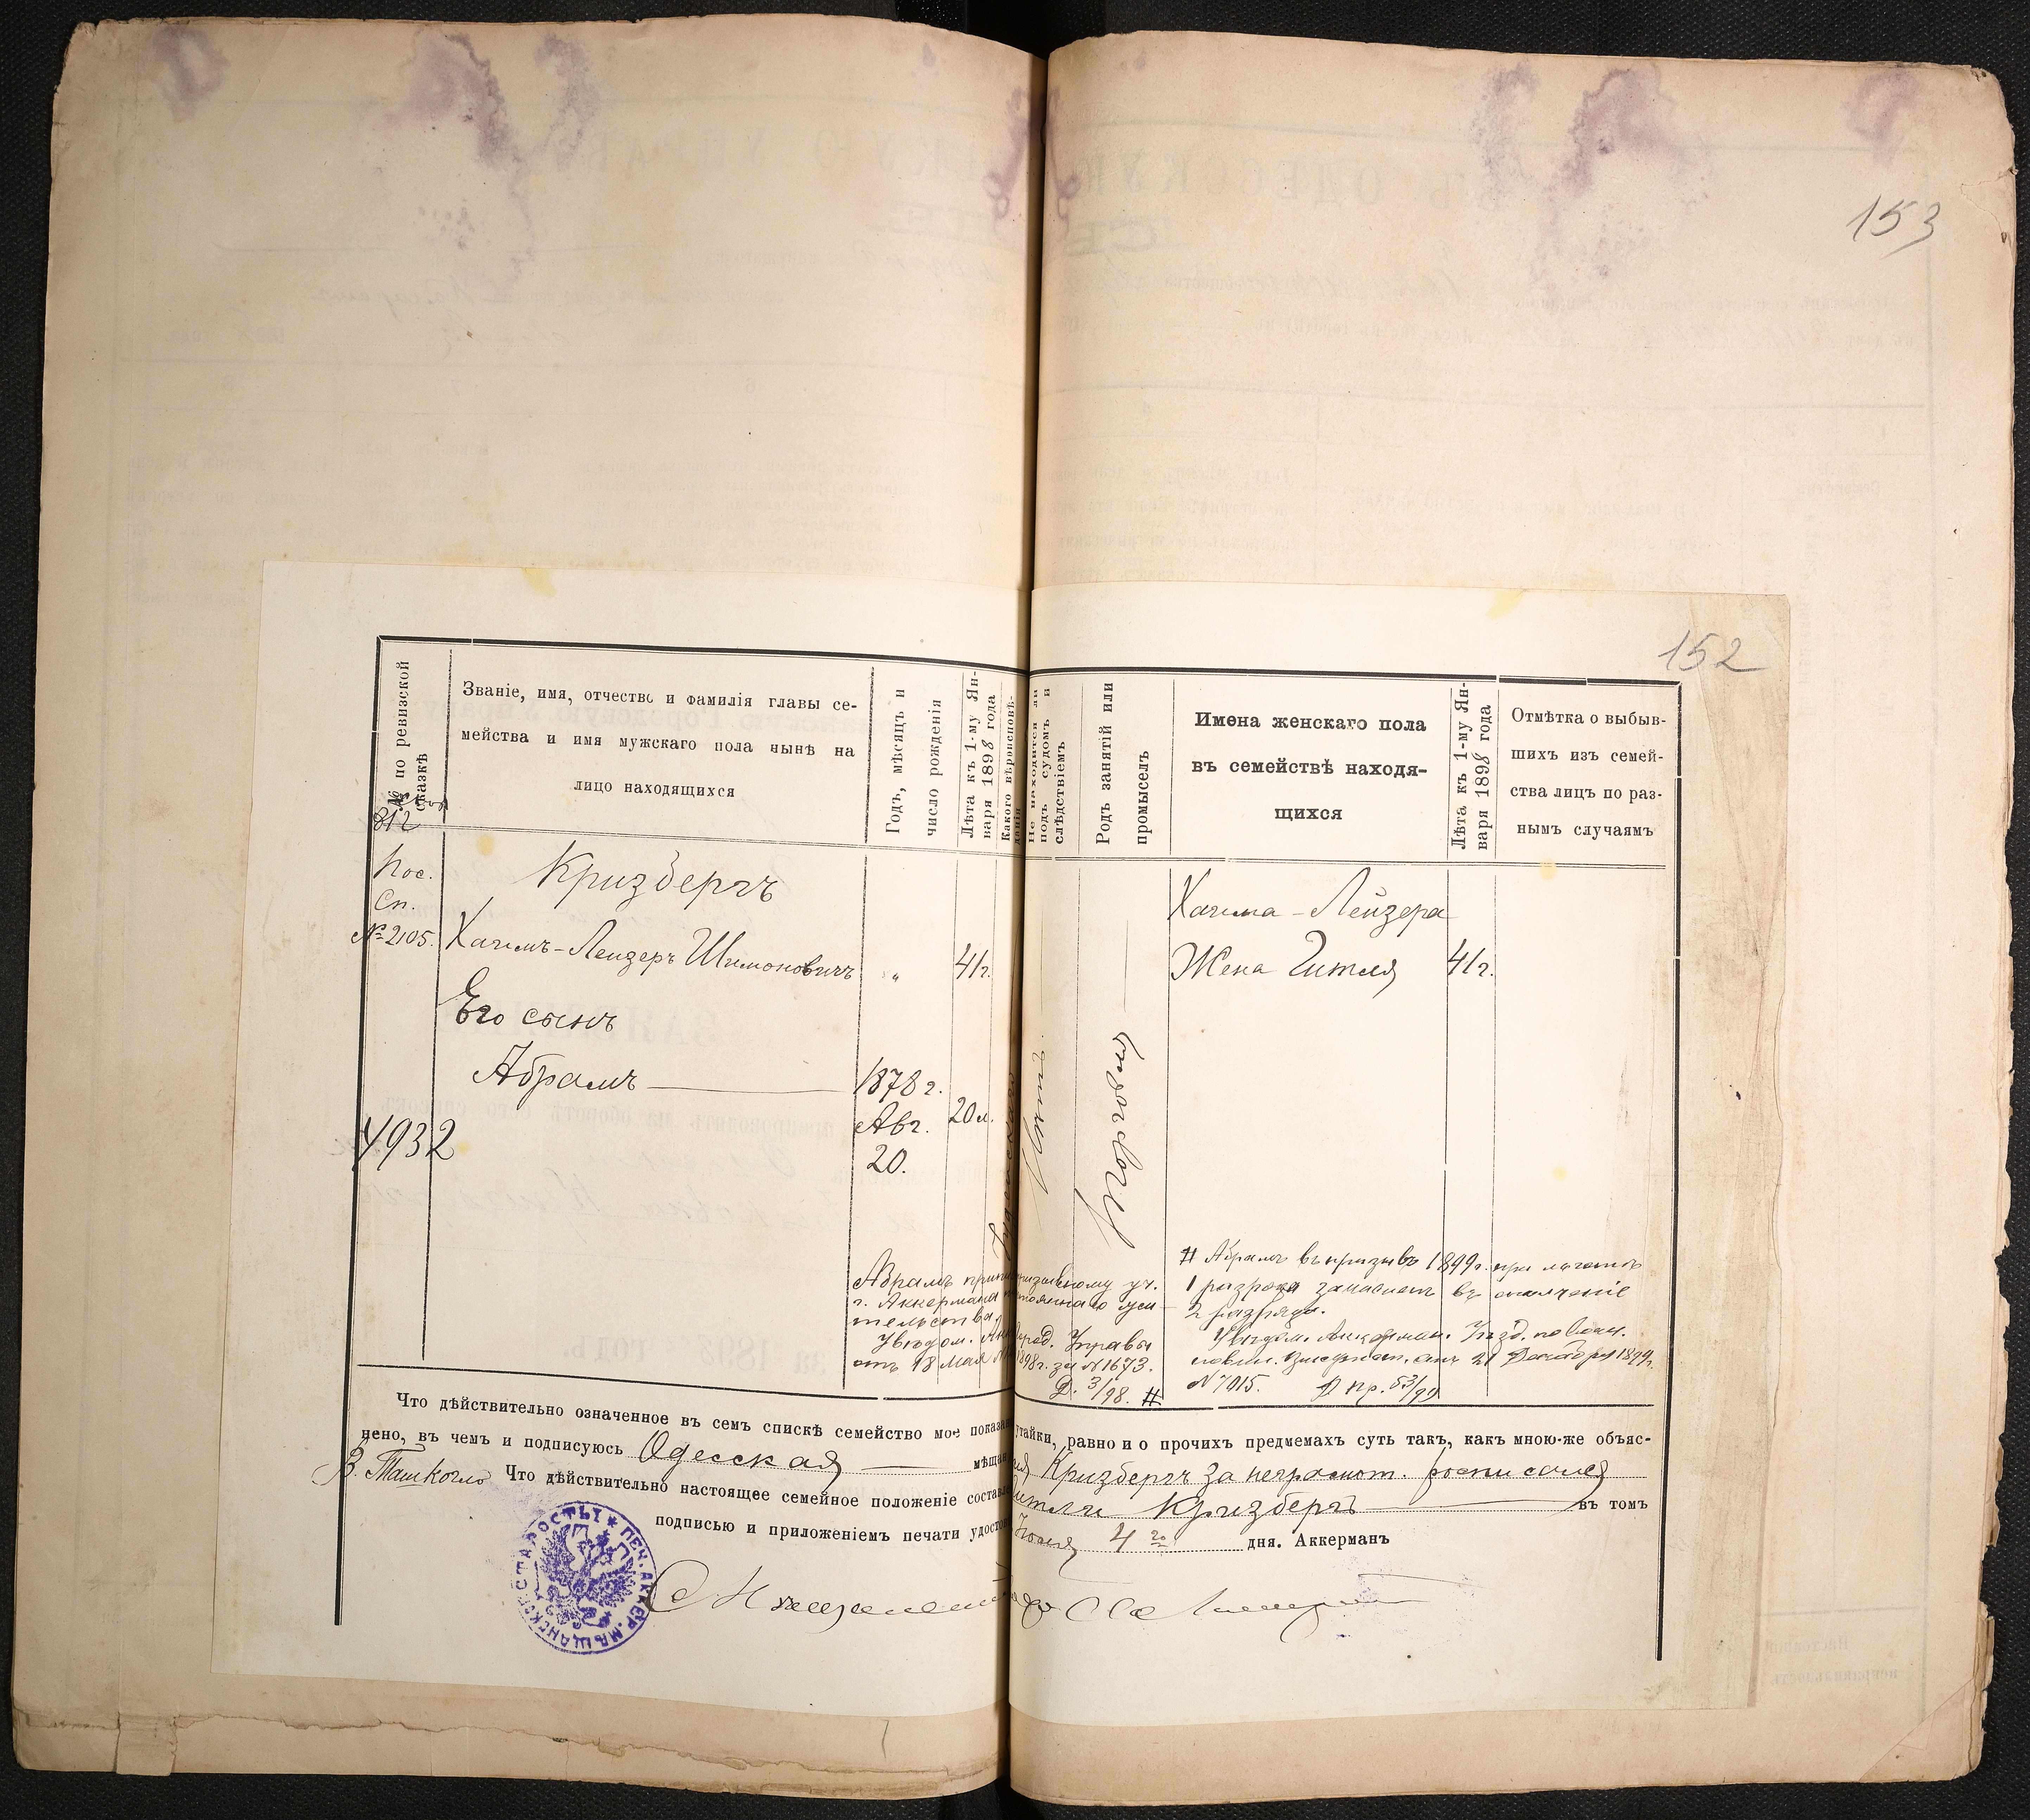 153
152
№ по ревизской сказкѣ
812
Званіе, имя, отчество и фамилія главы се-
мейства и имя мужскаго пола нынѣ на
лицо находящихся
Годъ, мѣсяцъ и
число рожденія
Лѣта къ 1-му Ян-
варя 1898 года
Какого вѣроисповѣ-
данія
Не находится ли
подъ судомъ и
слѣдствіемъ
Родъ занятій или
промыселъ
Имена женскаго пола
въ семействѣ находя-
щихся
Лѣта къ 1-му Ян-
варя 1898 года
Отмѣтка о выбыв-
шихъ изъ семей-
ства лицъ по раз-
нымъ случаямъ
Пос.
Сп.
№ 2105.
Кризбергъ
Хаимъ-Лейзеръ Шимоновичъ " 41 г.
Его сынъ
Абрамъ 1878 г.
Авг. 20 л.
20.
4932
Торговля
Хаима-Лейзера
Жена Гитля 41 г.
Абрамъ призывному уч.
г. Аккермана
тельства.
Увѣдом. Управы
отъ 18 Мая 1898 г. за № 1673.
Д. 3/98. #
# Абрамъ въ призывъ 1899 г. при льготѣ
1 разряда зачисленъ въ ополченіе
2 разряда.
Увѣдом. Аккерман. Уѣзд. по воин.
повин. присутст. отъ 21 Декабря 1899 г.
№ 7015. Д пр. 53/99
Что дѣйствительно означенное въ семъ спискѣ семейство мое показа утайки, равно и о прочихъ предмемахъ суть такъ, какъ мною-же объяс-
нено, въ чемъ и подписуюсь Одесская мѣщан Кризбергъ за неграмот. росписался
В. Ташкогло Что дѣйствительно настоящее семейное положеніе состав Гитли Кризбергъ въ томъ
подписью и приложеніемъ печати удосто 4 го дня. Аккерманъ
ПЕЧ. АККЕР. МѢЩАНСКОГ. СТАРОСТЫ